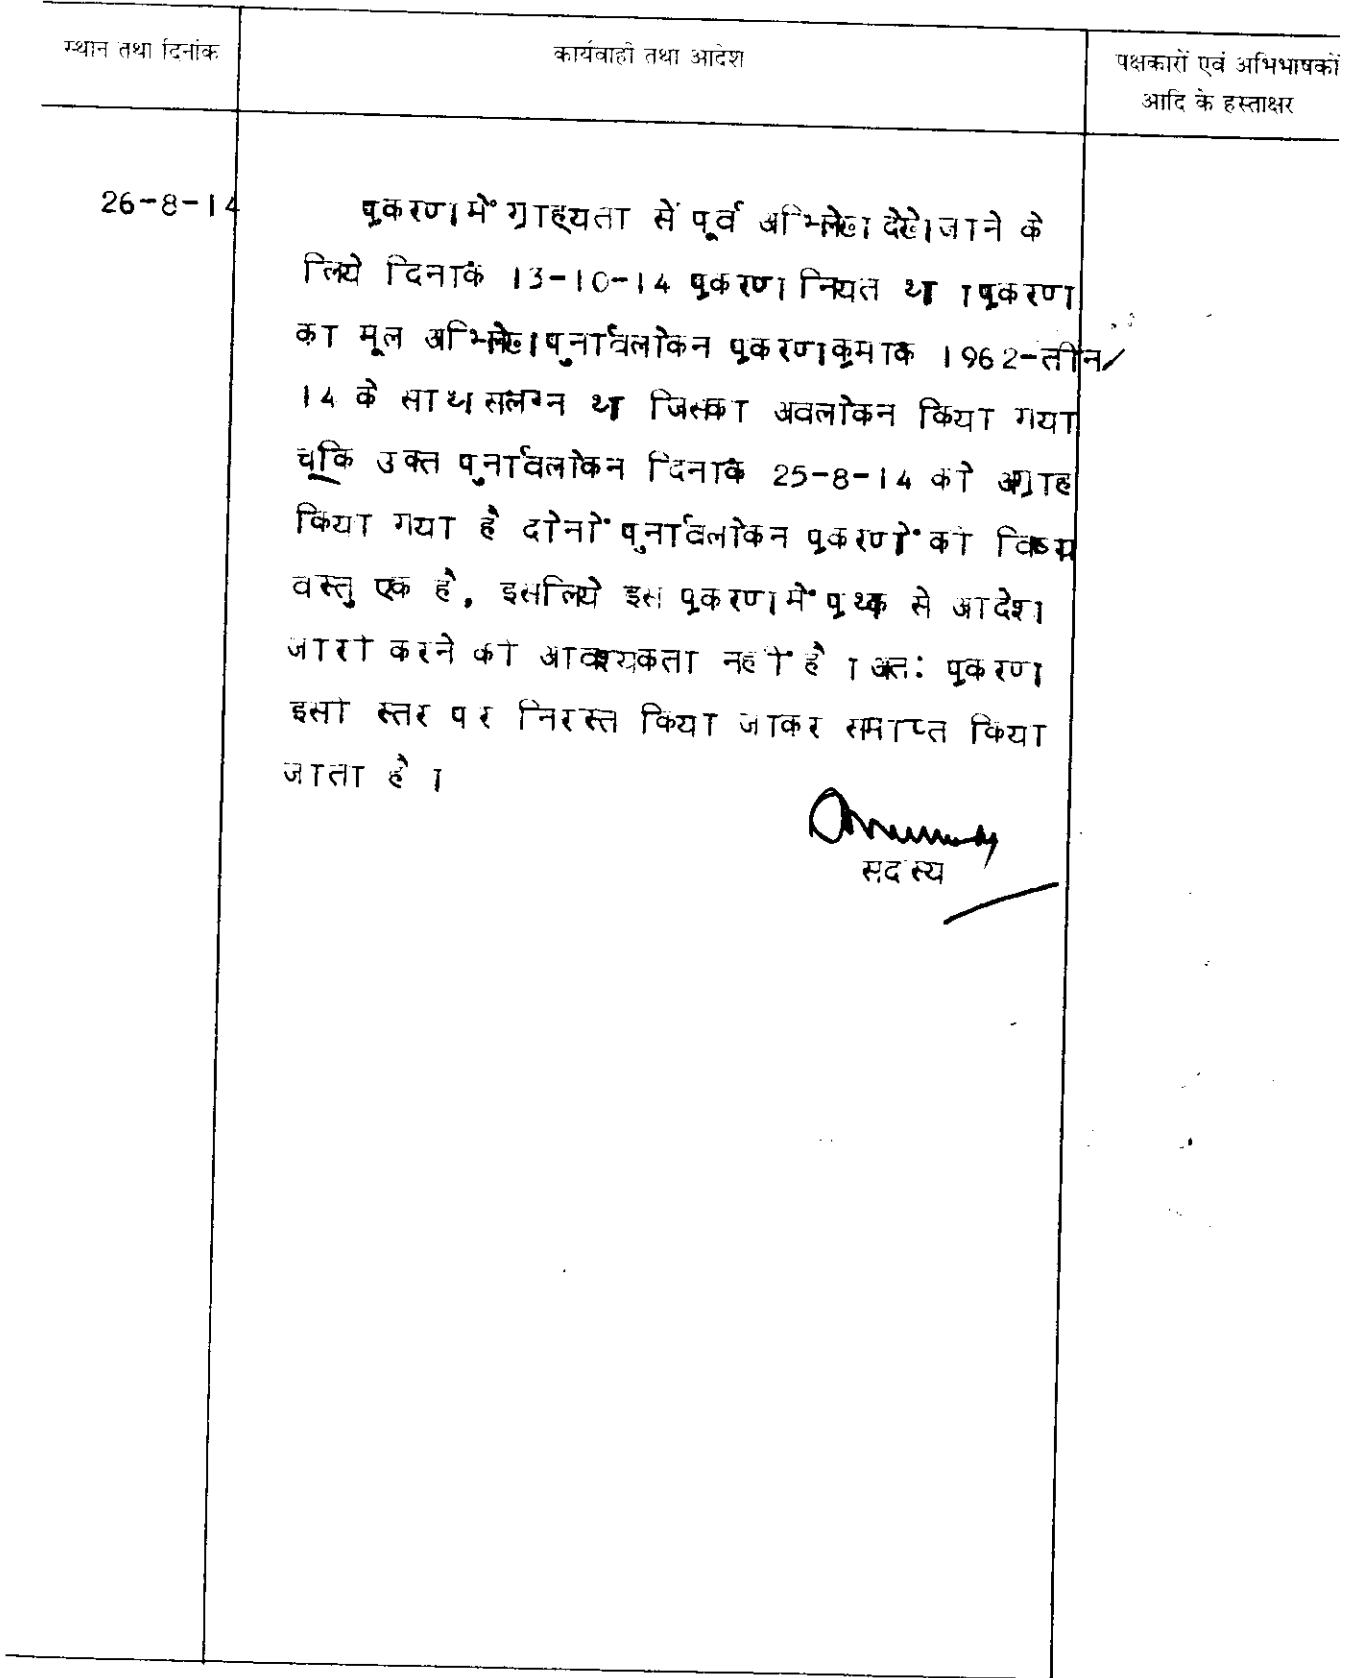 स्थान तथा दिनांक
कार्यवाही तथा आदेश
पक्षकारों एवं अभिभाषकों
आदि के हस्ताक्षर
26-8-14
प्रकरण में ग्राह्यता से पूर्व अभिलेख देखे जाने के
लिये दिनांक 13-10-14 प्रकरण नियत था । प्रकरण
का मूल अभिलेख पुनर्विलोकन प्रकरण क्रमांक 1962-तीन/
14 के साथ संलग्न था जिसका अवलोकन किया गया
चूंकि उक्त पुनर्विलोकन दिनांक 25-8-14 को अग्राह्य
किया गया है दोनों पुनर्विलोकन प्रकरणों की विषय
वस्तु एक है, इसलिये इस प्रकरण में पृथक से आदेश
जारी करने की आवश्यकता नहीं है । अतः प्रकरण
इसी स्तर पर निरस्त किया जाकर समाप्त किया
जाता है ।
सदस्य